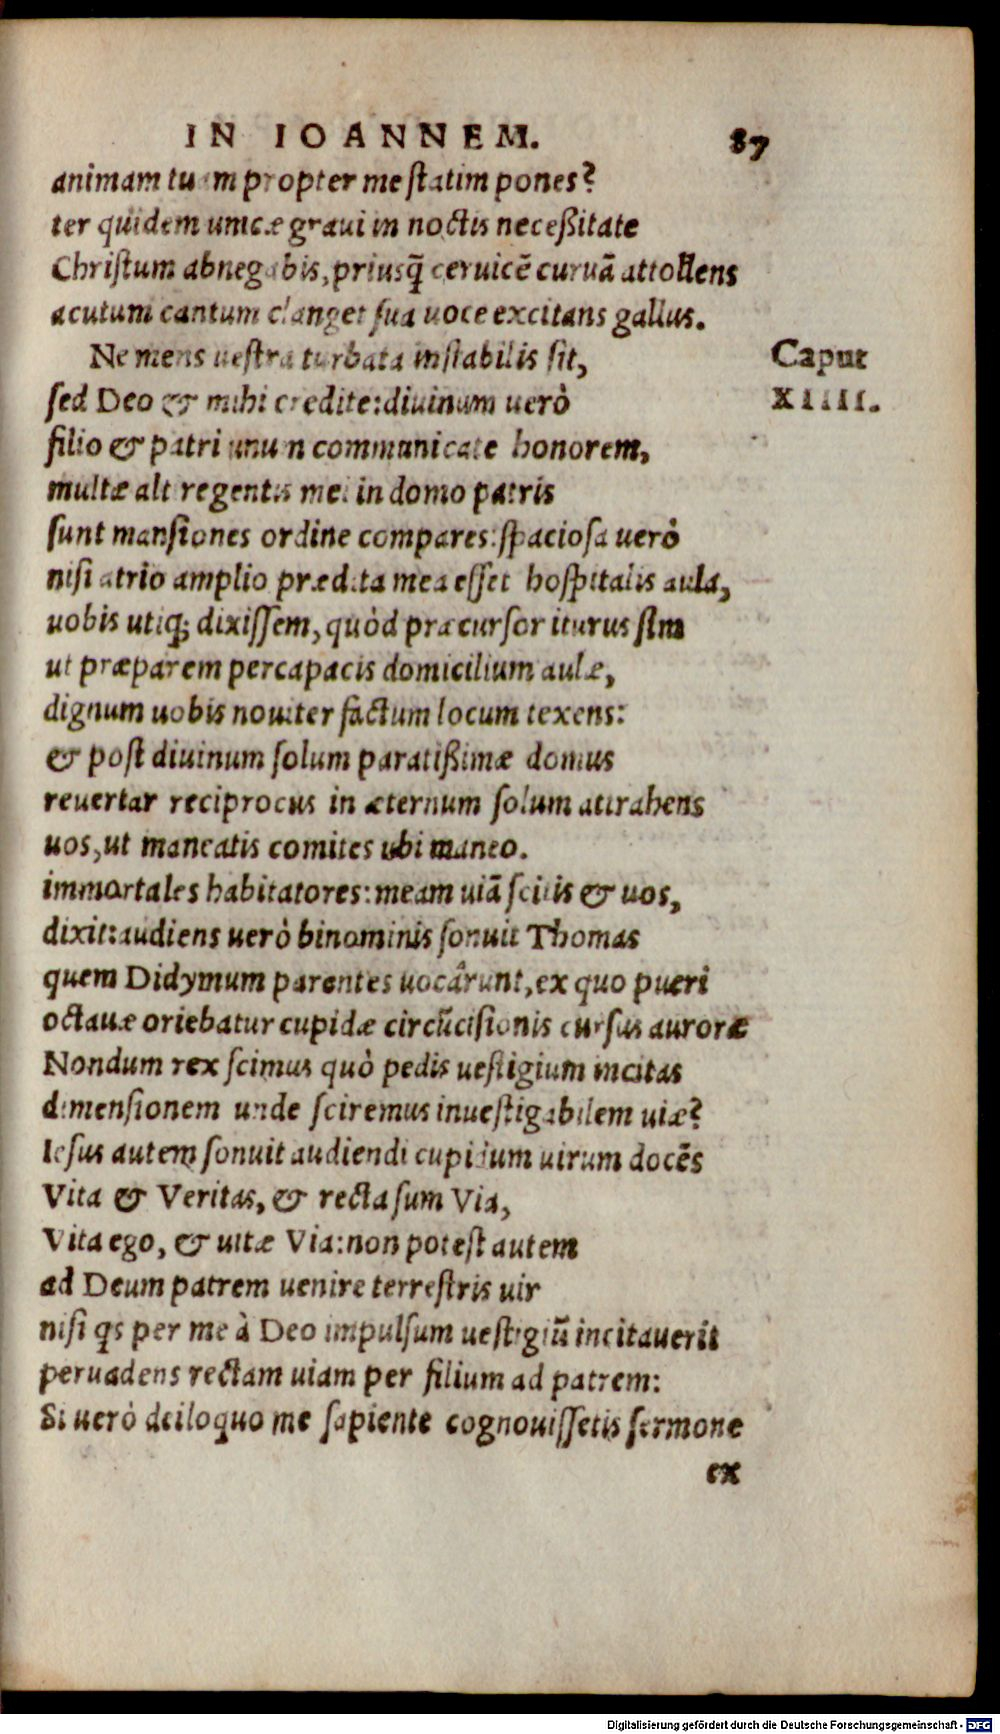 IN IOANNEM. 87
animam tuam propter me statim pones?
ter quidem unicæ graui in noctis neceßitate
Christum abnegabis, priusq̃ ceruicẽ curuã attollens
acutum cantum clanget sua uoce excitans gallus.
Ne mens uestra turbata instabilis sit,
Caput
XIIII.
sed Deo & mihi credite: diuinum uerò
filio & patri unum communicate honorem,
multæ alt regentis mei in domo patris
sunt mansiones ordine compares: spaciosa uerò
nisi atrio amplio prædita mea esset hospitalis aula,
uobis utiq; dixissem, quòd præcursor iturus sim
ut præparem percapacis domicilium aulæ,
dignum uobis nouiter factum locum texens:
& post diuinum solum paratißimæ domus
reuertar reciprocus in æternum solum attrahens
uos, ut maneatis comites ubi maneo.
immortales habitatores: meam uiã scitis & uos,
dixit: audiens uerò binominis sonuit Thomas
quem Didymum parentes uocârunt, ex quo pueri
octauæ oriebatur cupidæ circũcisionis cursus auroræ
Nondum rex scimus quò pedis uestigium incitas
dimensionem unde sciremus inuestigabilem uiæ?
Iesus autem sonuit audiendi cupidum uirum docẽs
Vita & Veritas, & recta sum Via,
Vita ego, & uitæ Via: non potest autem
ad Deum patrem uenire terrestris uir
nisi qs per me à Deo impulsum uestigiũ incitauerit
peruadens rectam uiam per filium ad patrem:
Si uerò deiloquo me sapiente cognouissetis sermone
ex
Digitalisierung gefördert durch die Deutsche Forschungsgemeinschaft - DFG